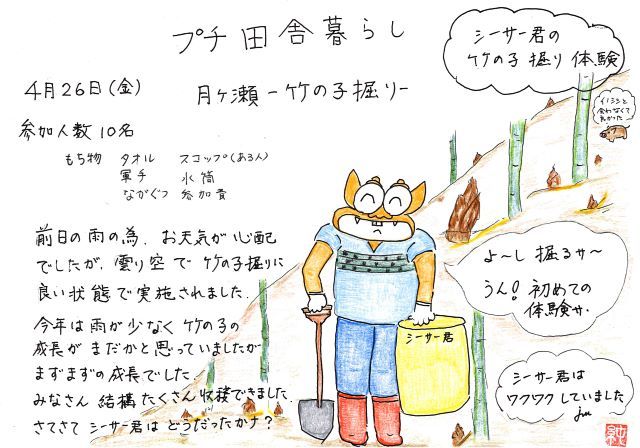 プチ田舎暮らし
シーサー君の
竹の子掘り体験
4月26日(金)
月ヶ瀬-竹の子掘り-
イノシシと
会わなくて
良かった
参加人数10名
もち物 タオル スコップ(ある人)
軍手 水筒
ながぐつ 参加費
前日の雨の為、お天気が心配
でしたが、曇り空で竹の子掘りに
良い状態で実施されました。
よ~し 掘るサ~
うん!初めての
体験サ.
今年は雨が少なく竹の子の
成長がまだかと思っていましたが
まずまずの成長でした。
みなさん 結構たくさん収穫できました.
さてさて シーサー君は どうだったかナ?
シーサー君
シーサー君は
ワクワクしていました